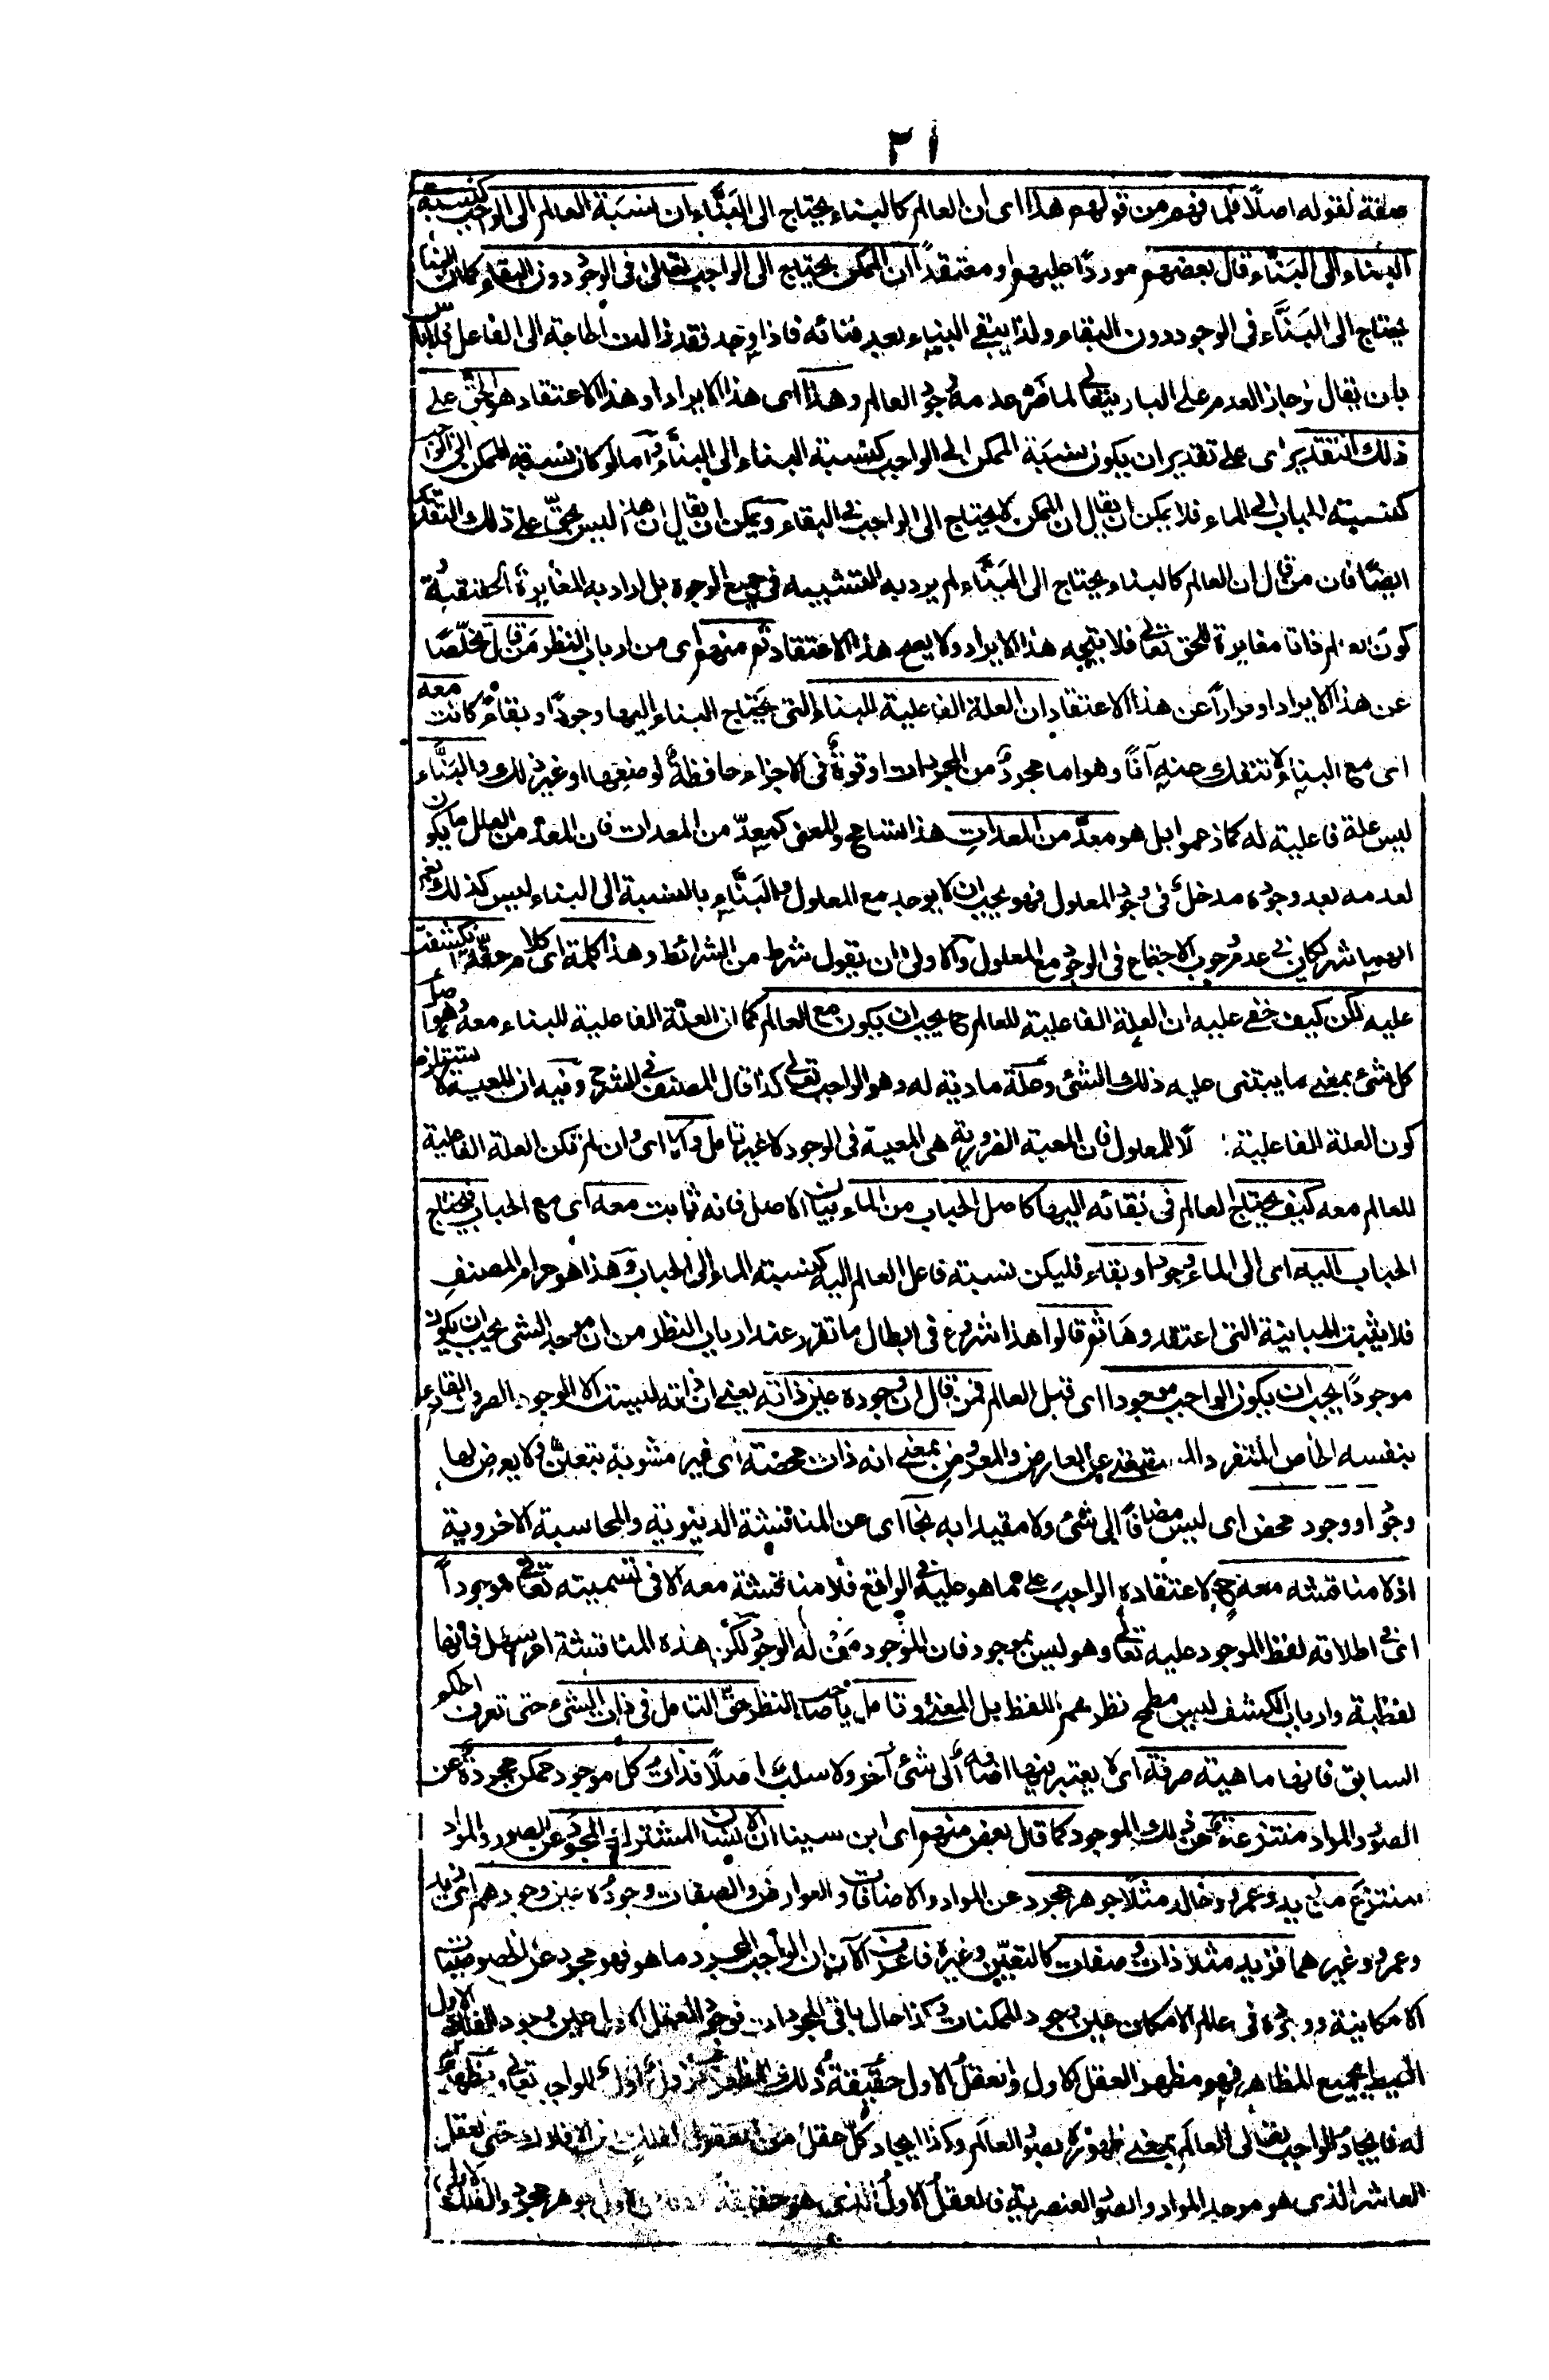 ٢١
صفة لقوله اصلًا فلما فهم من قولهم هذا اى ان العالم كالبناء يحتاج الى البَنَّاء ان نسبَة العالم الى الواجب كنسبة
البناء الى البَنَّاء قال بعضهم موردًا عليهم او معتقدًا ان الممكن يحتاج الى الواجب تعالى فى الوجود دون البقاء كما ان البناء
يحتاج الى البَنَّاء فى الوجود دون البقاء ولذا يبقى البناء بعد فنائه فاذا وجد فقد زالت الحاجة الى الفاعل فلا باس
بان يقال لو جاز العدم على البارى تعالى لما ضر عدمه وجود العالم وهذا اى هذا الايراد او هذا الاعتقاد هو الحق على
ذلك التقدير اى على تقدير ان يكون نسبَة الممكن الى الواجب كنسبة البناء الى البنَّاء واما لو كان نسبة الممكن الى الواجب
كنسبة الحباب الى الماء فلا يمكن ان يقال ان الممكن لا يحتاج الى الواجب فى البقاء ويمكن ان يقال ان هذا ليس بحق على ذلك التقدير
ايضًا فان من قال ان العالم كالبناء يحتاج الى البَنَّاء لم يرد به التشبيه فى جميع الوجوه بل اراد به المغايرة الحقيقية
كون العالم ذاتا مغايرة للحق تعالى فلا يتجه هذا الايراد ولا يصح هذا الاعتقاد ثم منهم اى من ارباب النظر مَن قال تخلّصًا
عن هذا الايراد او فرارًا عن هذا الاعتقاد ان العلة الفاعلية للبناء التى يحتاج البناء اليها وجودًا وبقاءً كانت معه
اى مع البناء لا تنفك عنه آنًا وهو اما مجردٌ من المجردات او قوةٌ فى الاجزاء حافظةٌ لوضعها او غير ذلك والبَنَّاء
ليس علة فاعلية له كما زعموا بل هو معدٌّ من المعداتِ هذا تسامح والمعنى كمعدّ من المعدات فان المعد من العلل ما يكون
لعدمه بعد وجوده مدخلٌ فى وجود المعلول فهو يجب ان لا يوجد مع المعلول والبَنَّاء بالنسبة الى البناء ليس كذلك نعم
انهما شريكان فى عدم وجوب الاجتماع فى الوجود مع المعلول والاولى ان يقول شرط من الشرائط وهذا كلمة اى كلام حقّة انكشفت
عليه لكن كيف خفى عليه ان العلة الفاعلية للعالم ح يجب ان يكون مع العالم كما ان العلّة الفاعلية للبناء معه وهو اصل
كل شئ بمعنى ما يبتنى عليه ذلك الشئ وعلة مادية له وهو الواجب تعالى كذا قال المصنف فى الشرح وفيه ان المعية لا تستلزم
كون العلة الفاعلية لًا للمعلول فان المعية الضرورية هى المعية فى الوجود لا غير تامل والا اى وان لم تكن العلة الفاعلية
للعالم معه كيف يحتاج العالم فى بقائه اليها كاصل الحباب من الماء بيان الاصل فانه ثابت معه اى مع الحباب فيحتاج
الحباب اليه اى الى الماء وجودا وبقاء فليكن نسبة فاعل العالم اليه كنسبة الماء الى الحباب وهذا هو مرام المصنف
فلا يثبت المباينية التى اعتقدوهَا ثم قالوا هذا شروع فى ابطال ما تقرر عند ارباب النظر من ان موجد الشئ يجب ان يكون
موجودًا يجب ان يكون الواجب موجودا اى قبل العالم فمن قال ان وجوده عين ذاته يعنى ان ذاته ليست الا الوجود الصرف القائم
بنفسه الخاص المتفرد المقتضى عن العارض والمعروض بمعنى انه ذات محضة اى غير مشوبة بتعلق لا يعرض لها
وجود او وجود محض اى ليس مضافًا الى شئ ولا مقيدا به نجا اى عن المناقشة الدنيوية والمحاسبة الاخروية
اذ لا مناقشه معه ح لاعتقاده الواجبَ على ما هو عليه فى الواقع فلا مناقشة معه الا فى تسميته تعالى موجوداً
اى فى اطلاقه لفظ الموجود عليه تعالى وهو ليس بموجود فان الموجود من له الوجود لكن هذه المناقشة امر سهل فانها
لفظية وارباب الكشف ليس مطمح نظرهم اللفظ بل المعنى وتامل يا صاحب النظر حق التامل فى ذات الشئ حتى تعرف الحكم
السابق فانها ماهية صرفة اى لا يعتبر فيها اضافة الى شئ آخر ولا سلب اصلًا فذات كل موجود ممكن مجردةٌ عن
الصور والمواد منتزعة عن ذلك الموجود كما قال بعض منهم اى ابن سينا ان الانسان المشترك المجرد عن الصور والمواد
منتزعَ من زيد وعمرو وخالد مثلًا جوهر مجرد عن المواد والاضافات والعوارض والصفات وجوده عين وجودهم اى زيد
وعمرو وغيرهما فزيد مثلا ذات وصفات كالتعيّن وغيره فاعرف الآن ان الواجب المجرد ما هو فهو مجرد عن الخصوصيات
الامكانية ووجوده فى عالم الامكان عين وجود الممكنات وكذا حال باقى المجردات فوجود العقل الاول عين وجود الفلك الاول
المحيط بجميع المظاهر فهو مظهر العقل الاول والعقل الاول حقيقة ذلك المظهر وتنزل اول للواجب تعالى ومظهر
له فايجاد الواجب تعالى العالَم بمعنى ظهوره بصور العالَم وكذا ايجاد كلّ عقل من العقول الفلك من الافلاك حتى العقل
العاشر الذى هو موجد المواد والصور العنصرية فالعقل الاول الذى هو حقيقة اول جوهر مجرد والفلك الاول